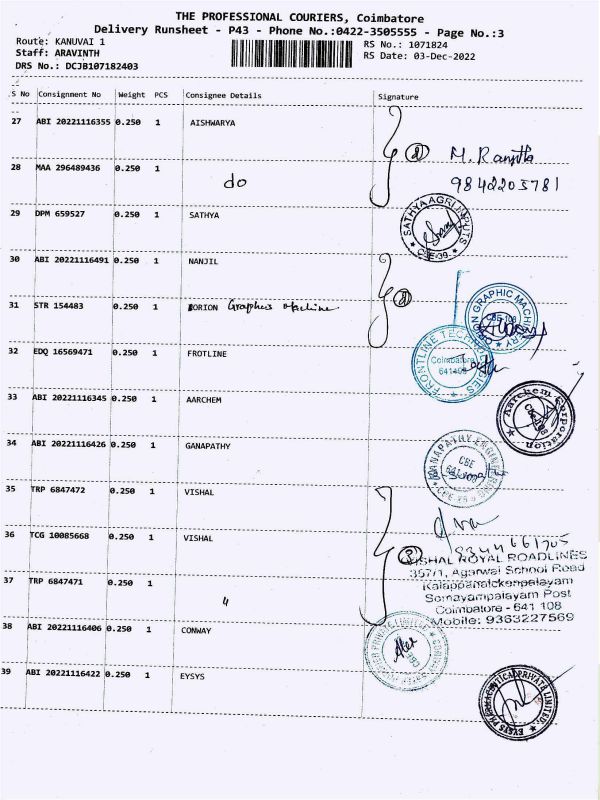 THE PROFESSIONAL COURIERS, Coimbatore
Delivery Runsheet - P43 - Phone No.:0422-3505555 - Page No.:3
Route: KANUVAI 1
RS No.: 1071824
Staff: ARAVINTH
RS Date: 03-Dec-2022
DRS No.: DCJB107182403
S No Consignment No Weight PCS Consignee Details Signature
27 ABI 20221116355 0.250 1 AISHWARYA
M. Ranjitha
28 MAA 296489436 0.250 1 do
9842203781
29 DPM 659527 0.250 1 SATHYA
SATHYA AGRI INPUTS
CBE-38
30 ABI 20221116491 0.250 1 NANJIL
31 STR 154483 0.250 1 ORION Graphics Machine
ORION GRAPHIC MACHINERY
CBE-108
32 EDQ 16569471 0.250 1 FROTLINE
FRONTLINE TECHNOLOGIES
Coimbatore
33 ABI 20221116345 0.250 1 AARCHEM
Aarchem Corporation
34 ABI 20221116426 0.250 1 GANAPATHY
GANAPATHY ENGINEERING
CBE
35 TRP 6847472 0.250 1 VISHAL
36 TCG 10085668 0.250 1 VISHAL
VISHAL ROYAL ROADLINES
357/1, Agarwal School Road
Kalappanaickenpalayam
37 TRP 6847471 0.250 1 "
Somayampalayam Post
Coimbatore - 641 108
Mobile: 9363227569
38 ABI 20221116406 0.250 1 CONWAY
39 ABI 20221116422 0.250 1 EYSYS
EYSYS PHARMACEUTICAL PRIVATE LIMITED